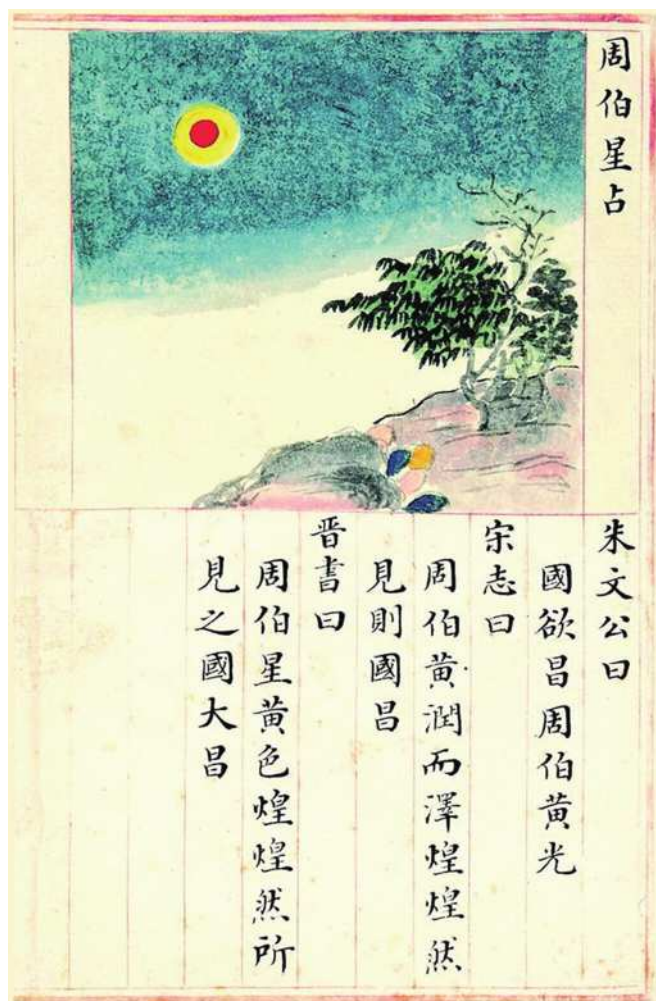 周伯星占
朱文公曰
國欲昌周伯黄光
宋志曰
周伯黄潤而澤煌煌然
見則國昌
晋書曰
周伯星黄色煌煌然所
見之國大昌